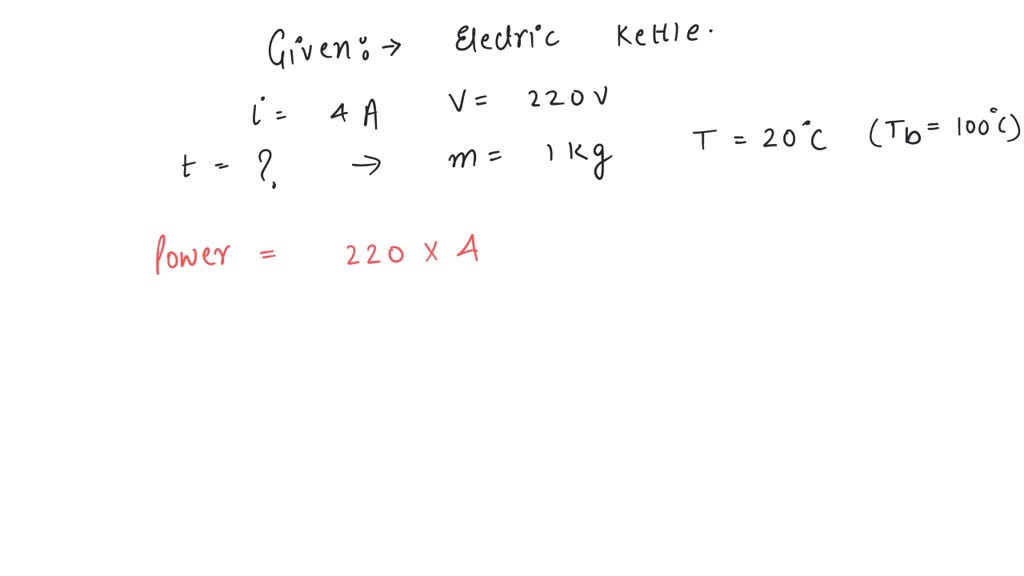 Given:→ Electric Kettle.
i = 4 A V = 220 V
t = ? → m = 1 kg T = 20°C (Tb = 100°C)
Power = 220 x 4